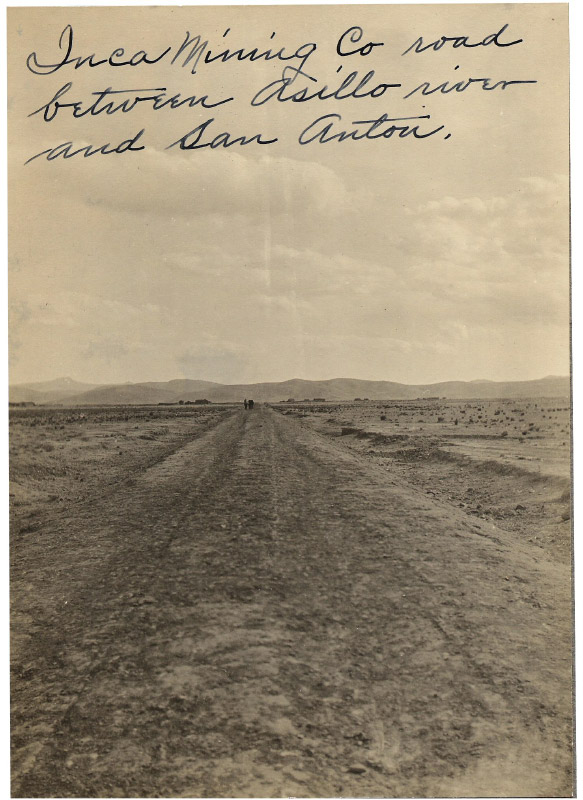 Inca Mining Co road
between Asillo river
and San Anton.